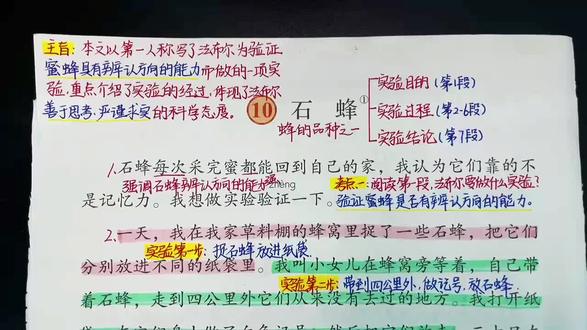 主旨：本文以第一人称写了法布尔为验证
蜜蜂具有辨认方向的能力而做的一项实
验，重点介绍了实验的经过，体现了法布尔
善于思考、严谨求实的科学态度。
10 石蜂①
蜂的品种之一
实验目的（第1段）
实验过程（第2-6段）
实验结论（第7段）
1.石蜂每次采完蜜都能回到自己的家，我认为它们靠的不
强调石蜂辨认方向的能力强
zhèng
考点一：阅读第一段，法布尔要做什么实验？
是记忆力。我想做实验验证一下。
验证蜜蜂是否有辨认方向的能力。
2.一天，我在我家草料棚的蜂窝里捉了一些石蜂，把它们
实验第一步：捉石蜂放进纸袋
分别放进不同的纸袋里。我叫小女儿在蜂窝旁等着，自己带
实验第二步：带到四公里外，做记号，放石蜂
着石蜂，走到四公里外它们从来没有去过的地方。我打开纸